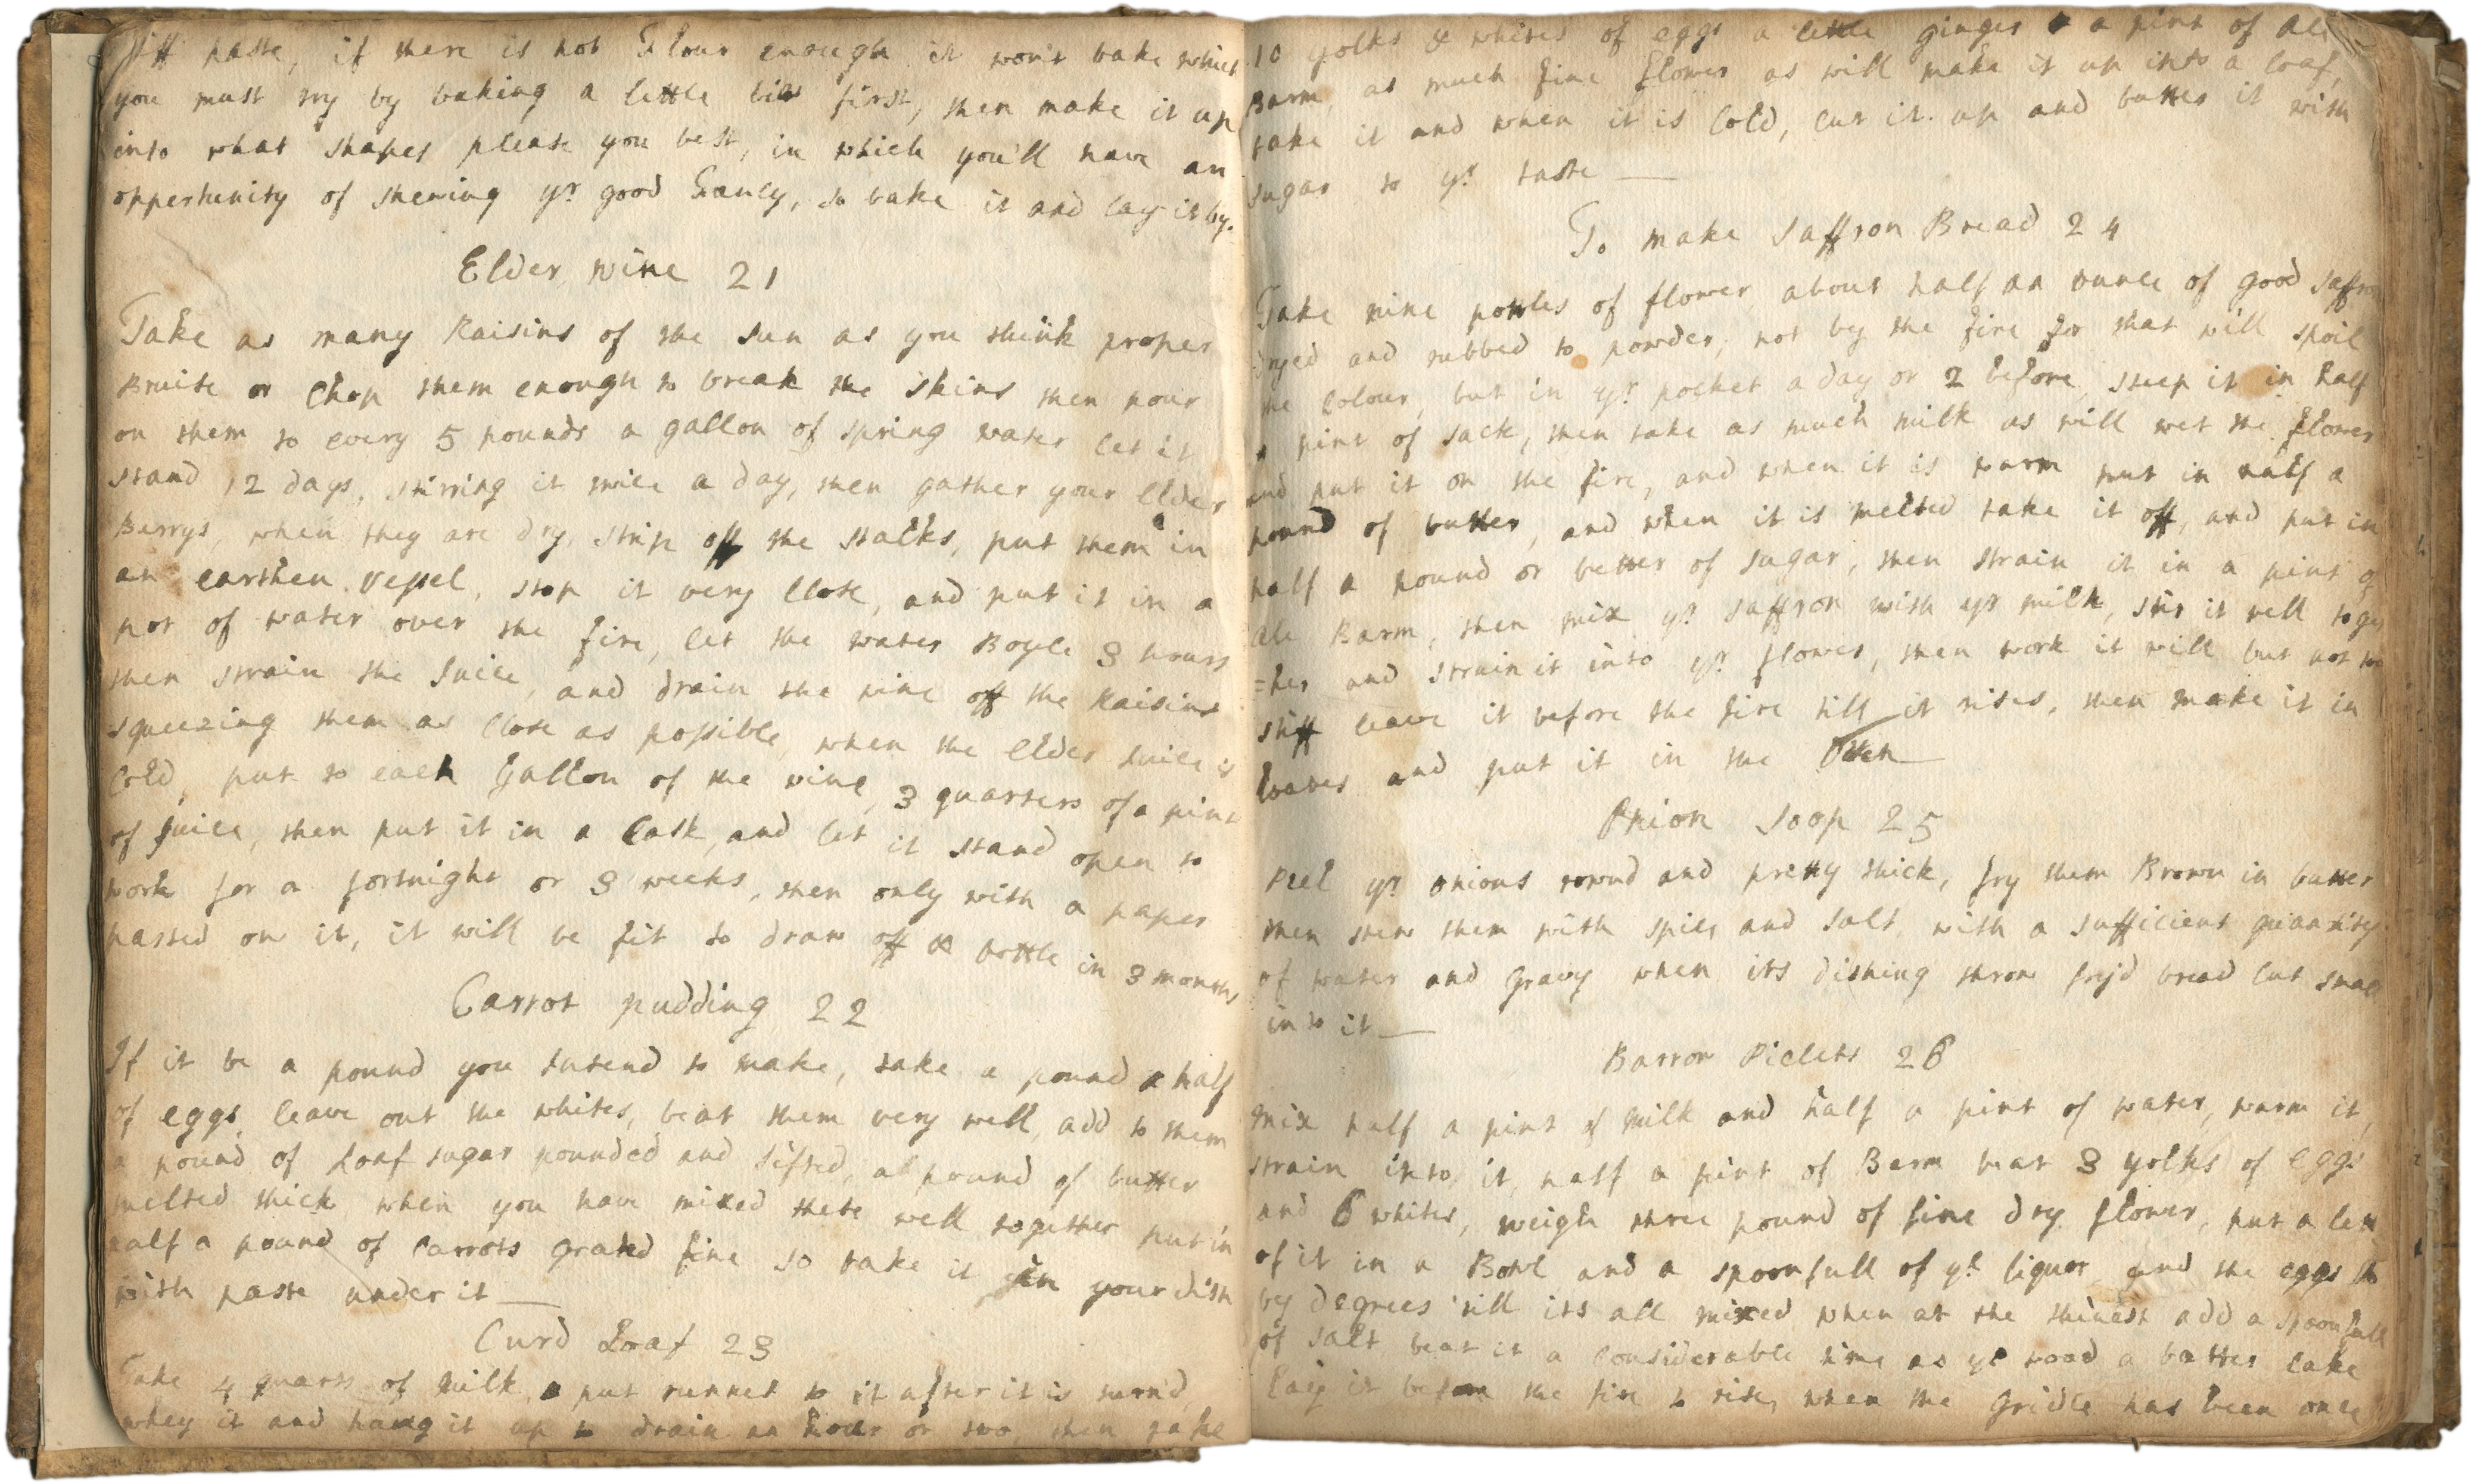 stiff paste, if there is not Flour enough it won't bake which
you must try by baking a little bit first, then make it up
into what shapes please you best, in which you'll have an
oppertunity of shewing yr good Fancy, so bake it and lay it by.
Elder wine 21
Take as many Raisins of the sun as you think proper
Bruise or Chop them enough to break the skins then pour
on them to every 5 pounds a gallon of spring water let it
stand 12 days, stirring it twice a day, then gather your Elder
Berrys, when they are dry, strip off the stalks, put them in
an earthen vessel, stop it very Close, and put it in a
pot of water over the fire, let the water Boyle 3 hours
then strain the Juice, and drain the wine off the Raisins
squeezing them as Close as possible, when the elder Juice is
Cold, put to each Gallon of the wine, 3 quarters of a pint
of Juice, then put it in a Cask, and let it stand open to
work for a fortnight or 3 weeks, then only with a paper
pasted on it, it will be fit to draw off & bottle in 3 months
Carrot pudding 22
If it be a pound you Intend to make, take a pound & half
of eggs, leave out the whites, beat them very well, add to them
a pound of Loaf sugar pounded and sifted, a pound of butter
melted thick when you have mixed these well together put in
half a pound of Carrots grated fine so bake it in your dish
with paste under it
Curd Loaf 23
Take 4 quarts of Milk, & put runnet to it after it is turn'd,
whey it and hang it up to drain an hour or two, then take
10 yolks & whites of eggs a little ginger & a pint of Ale
Barm, as much fine flower as will make it up into a loaf,
bake it and when it is Cold, cut it up and butter it with
sugar to yr taste
To make Saffron Bread 24
Take nine powles of flower, about half an ounce of good saffron
dryed and rubbed to powder, not by the fire for that will spoil
the Colour, but in yr pocket a day or 2 before, steep it in half
a pint of sack, then take as much milk as will wet the flower
and put it on the fire, and when it is warm put in half a
pound of butter, and when it is melted take it off, and put in
half a pound or better of sugar, then strain it in a pint of
Ale Barm, then mix yr saffron with yr milk, stir it well toge
=ther and strain it into yr flower, then work it well but not too
stiff leave it before the fire till it rises, then make it in
loaves and put it in the Oven
Onion Soop 25
Peel yr onions round and pretty thick, fry them Brown in butter
then stew them with spice and salt, with a sufficient quantity
of water and Gravy when its dishing throw fry'd bread cut small
into it
Barrow Piclets 26
Mix half a pint of Milk and half a pint of water, warm it,
strain into it, half a pint of Barm beat 3 yolks of eggs
and 6 whites, weigh three pound of fine dry flower, put a little
of it in a Bowl and a spoonfull of yr liquor and the eggs
by degrees till its all mixed when at the thickest add a spoonfull
of salt beat it a Considerable time as yo woud a batter Cake
Lay it before the fire to rise, when the Gridle has been once